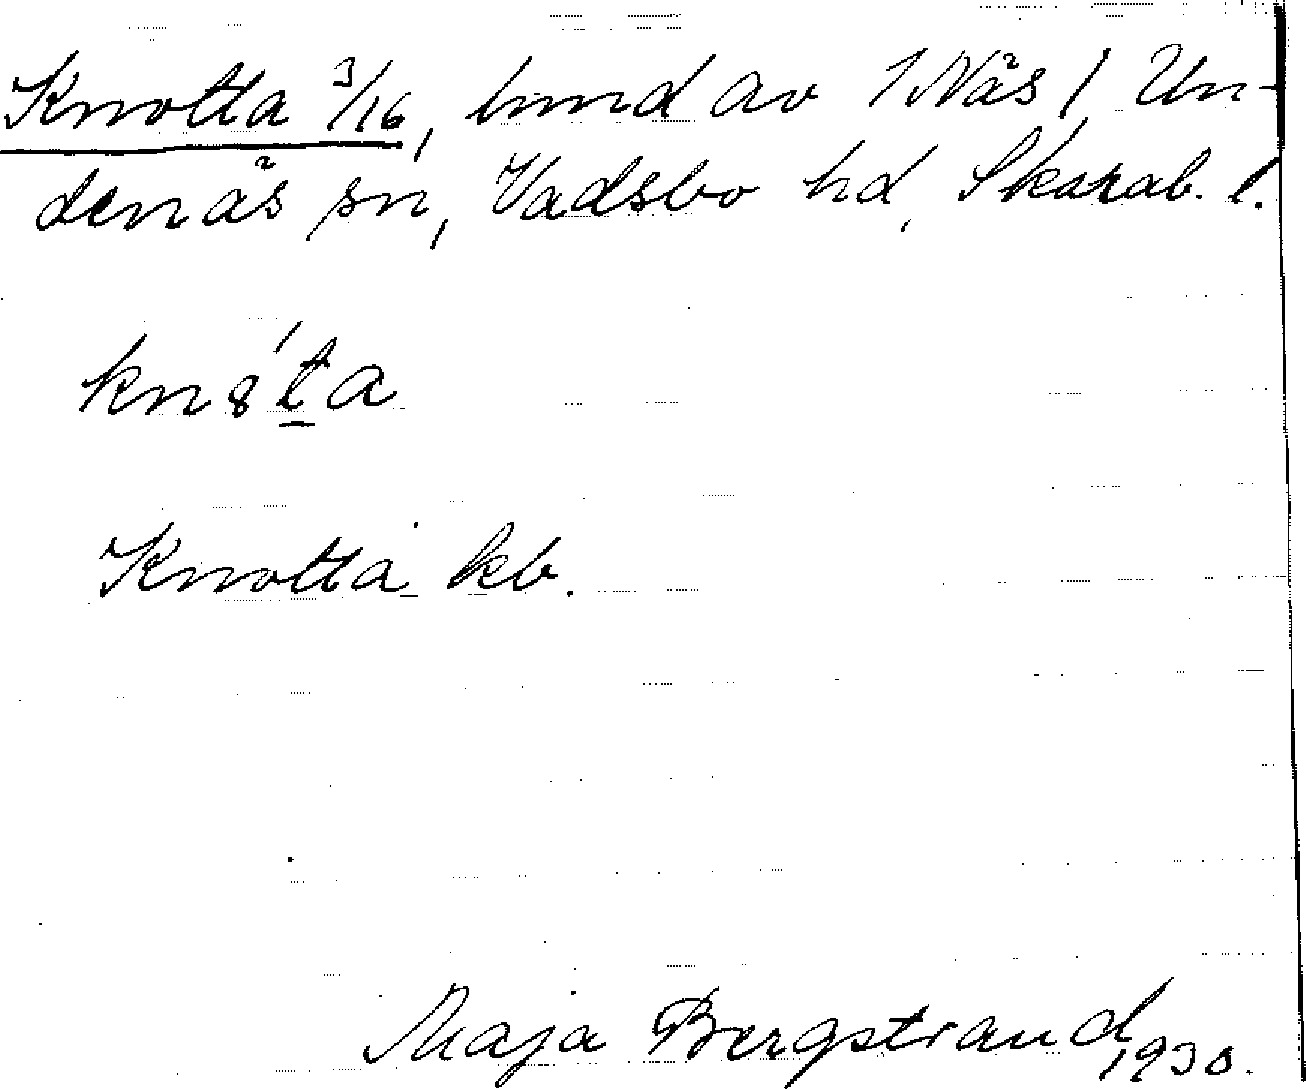 Knotta 3/16, lund av 1 Näs /, Un-
denäs sn, Vadsbo hd, Skarab. l.
kn8́ṯa
Knotta kb.
Maja Bergstrand, 1930.